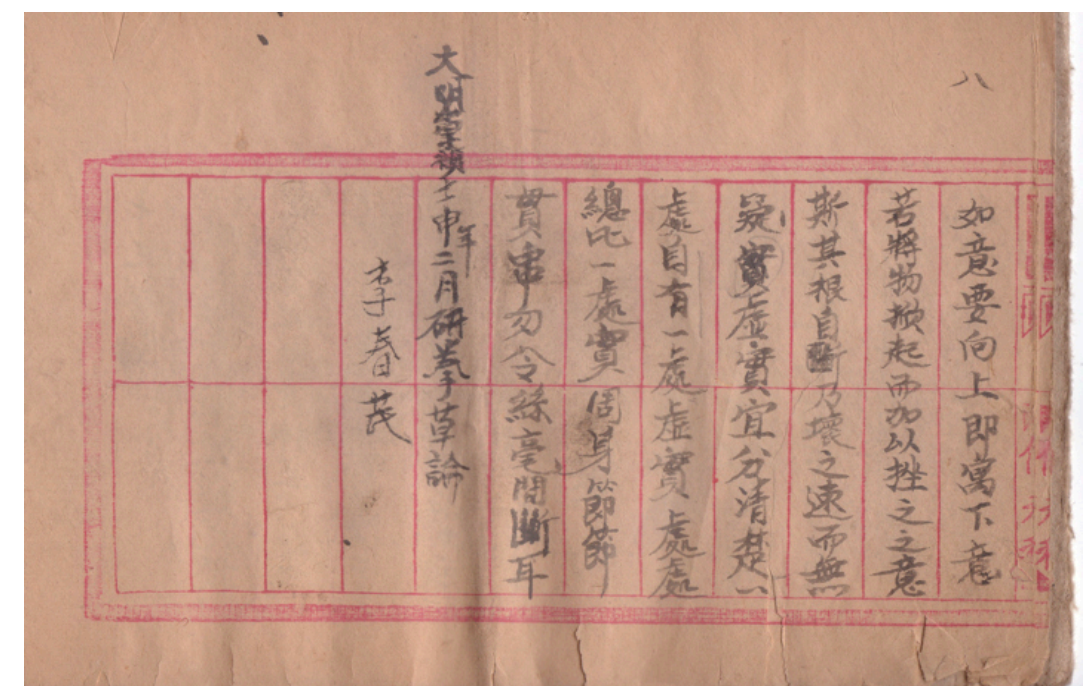 八
如意要向上即寓下意
若將物掀起而加以挫之之意
斯其根自斷乃壞之速而無
疑實虛實宜分清楚一
處自有一處虛實處處
總此一處實周身節節
貫串勿令絲毫間斷耳
大明崇禎壬申年二月研拳草論
李春茂